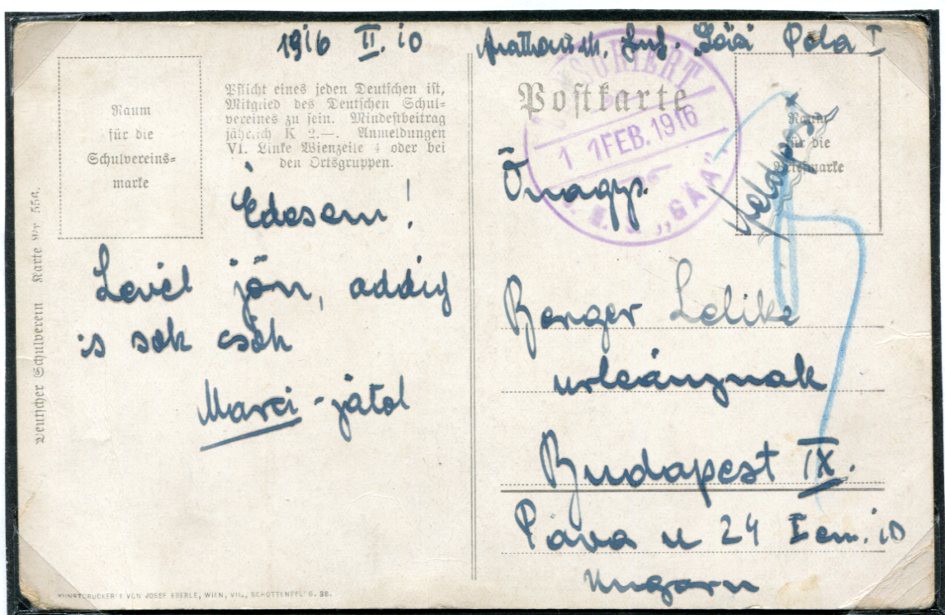 1916 II. 10
"Gäa" Pola I
Raum
für die
Schulvereins-
marke
Pflicht eines jeden Deutschen ist,
Mitglied des Deutschen Schul-
vereines zu sein. Mindestbeitrag
jährlich K 2.—. Anmeldungen
VI. Linke Wienzeile 4 oder bei
den Ortsgruppen.
Édesem!
Levél jön, addig
is sok csók
Marci-jától
Deutscher Schulverein Karte Nr. 559.
KUNSTDRUCKEREI VON JOSEF EBERLE, WIEN, VII., SCHOTTENFELDG. 38.
Postkarte
ZENSURIERT
11 FEB. 1916
S. M. S. „GÄA"
Raum
für die
Briefmarke
Feldpost
Önagys.
Berger Lelike
urleánznak
Budapest IX.
Páva u 24 I em. 10
Ungarn